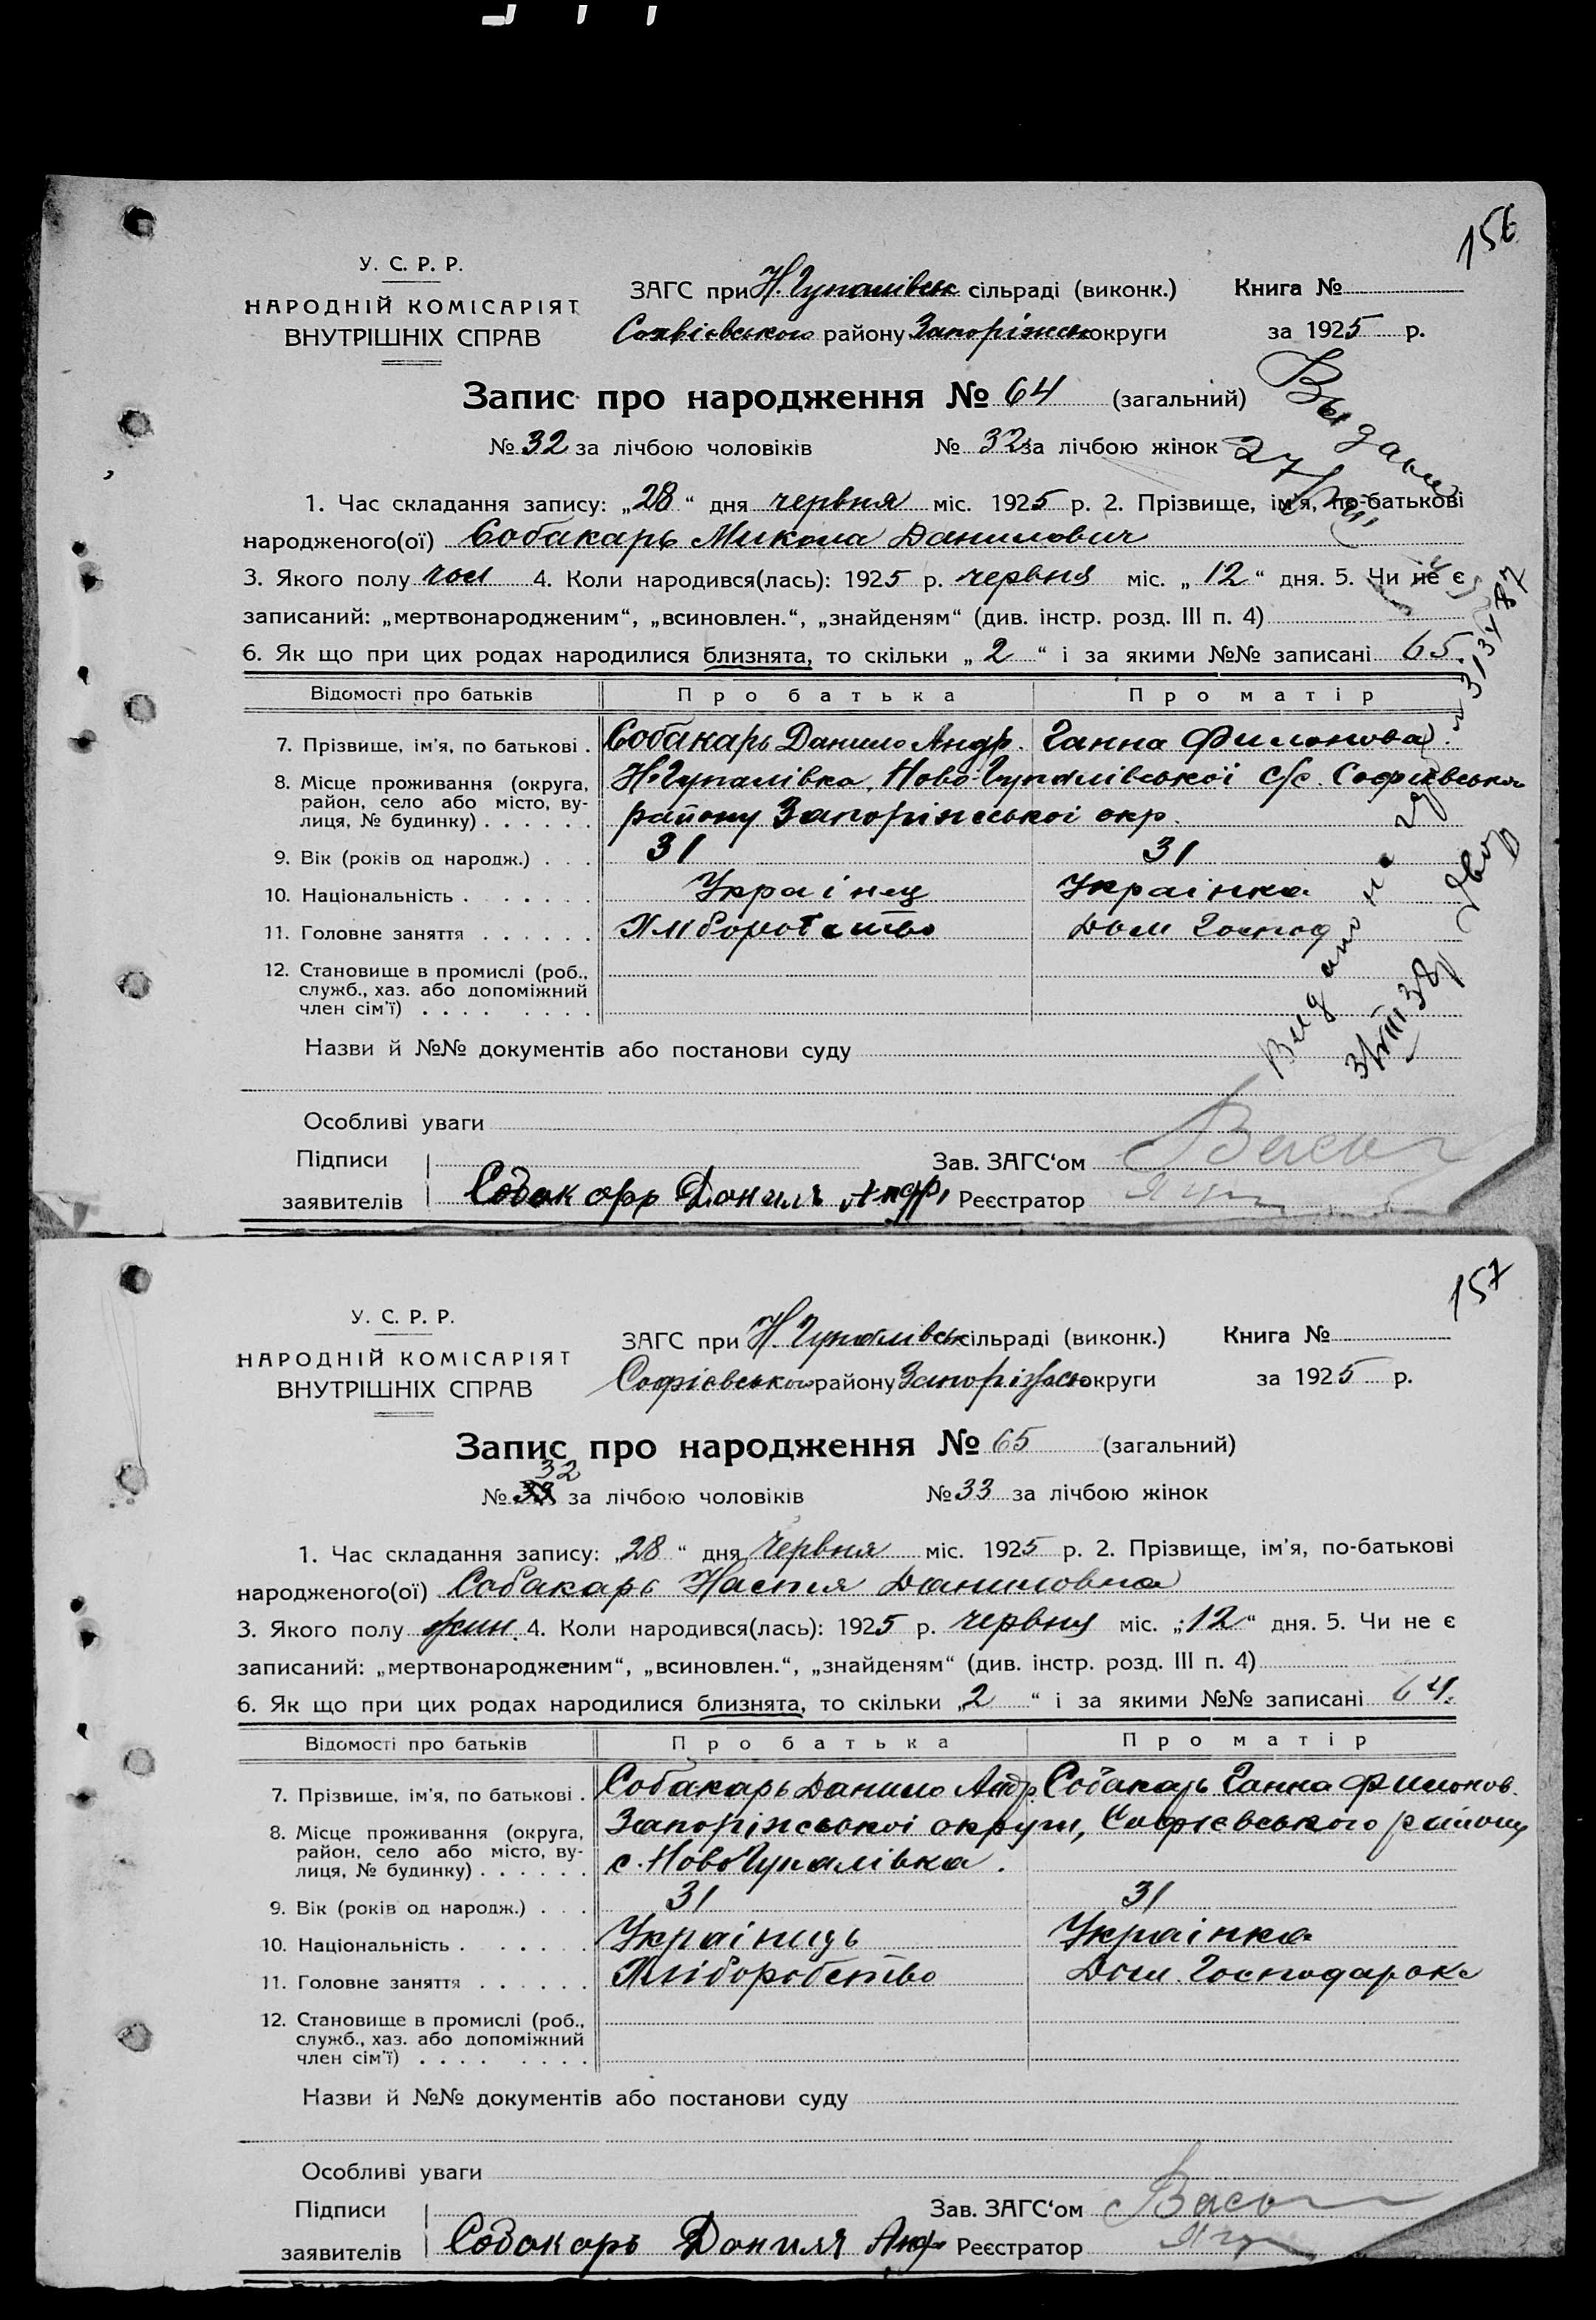 156
У. С. Р. Р.
НАРОДНІЙ КОМІСАРІЯТ
ВНУТРІШНІХ СПРАВ
ЗАГС при Н. Гупалівськ сільраді (виконк.) Книга №
Софієвського району Запоріжсько округи за 1925 р.
Запис про народження № 64 (загальний)
№ 32 за лічбою чоловіків № 32 за лічбою жінок
1. Час складання запису: „28“ дня червня міс. 1925 р. 2. Прізвище, ім'я, по-батькові
народженого(ої) Собакарь Микола Данилович
3. Якого полу чол 4. Коли народився(лась): 1925 р. червня міс. „12“ дня. 5. Чи не є
записаний: „мертвонародженим“, „всиновлен.“, „знайденям“ (див. інстр. розд. III п. 4)
6. Як що при цих родах народилися близнята, то скільки „2“ і за якими №№ записані 65.
Відомості про батьків Про батька Про матір
7. Прізвище, ім'я, по батькові . Собакарь Данило Андр. Ганна Филонова
8. Місце проживання (округа, Н-Гупалівка, Ново-Гупалівської с/с. Софиівська
район, село або місто, ву-
лиця, № будинку) . . . . . . району Запоріжської окр.
9. Вік (років од народж.) . . . 31 31
10. Національність . . . . . . . Украінец Украінка
11. Головне заняття . . . . . . Хліборобство Дом Господ
12. Становище в промислі (роб.,
служб., хаз. або допоміжний
член сім'ї) . . . . . . . .
Назви й №№ документів або постанови суду
Особливі уваги
Підписи Зав. ЗАГС'ом
заявителів Собокорр Донило Андр, Реєстратор
Выдан
Видано
157
У. С. Р. Р.
НАРОДНІЙ КОМІСАРІЯТ
ВНУТРІШНІХ СПРАВ
ЗАГС при Н. Гупалівськ сільраді (виконк.) Книга №
Софієвського району Запоріжсько округи за 1925 р.
Запис про народження № 65 (загальний)
32
№ 33 за лічбою чоловіків № 33 за лічбою жінок
1. Час складання запису: „28“ дня Червня міс. 1925 р. 2. Прізвище, ім'я, по-батькові
народженого(ої) Собакарь Настя Даниловна
3. Якого полу жин. 4. Коли народився(лась): 1925 р. червня міс. „12“ дня. 5. Чи не є
записаний: „мертвонародженим“, „всиновлен.“, „знайденям“ (див. інстр. розд. III п. 4)
6. Як що при цих родах народилися близнята, то скільки „2“ і за якими №№ записані 64.
Відомості про батьків Про батька Про матір
7. Прізвище, ім'я, по батькові . Собакарь Данило Андр. Собакарь Ганна Филонов.
8. Місце проживання (округа, Запоріжської округи, Софієвського району
район, село або місто, ву-
лиця, № будинку) . . . . . . с. Ново Гупалівка.
9. Вік (років од народж.) . . . 31 31
10. Національність . . . . . . . Украінець Украінка
11. Головне заняття . . . . . . Хліборобство Дом. Господарок
12. Становище в промислі (роб.,
служб., хаз. або допоміжний
член сім'ї) . . . . . . . .
Назви й №№ документів або постанови суду
Особливі уваги
Підписи Зав. ЗАГС'ом
заявителів Собокорь Дониля Андр Реєстратор